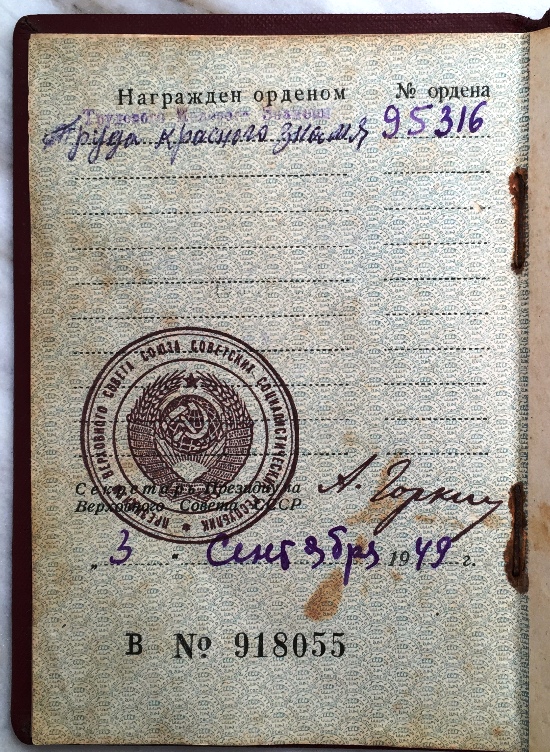 Награжден орденом № ордена
Трудового Красного Знамени
Труда красного знамя 95316
ПРЕЗИДИУМ ВЕРХОВНОГО СОВЕТА СОЮЗА СОВЕТСКИХ СОЦИАЛИСТИЧЕСКИХ РЕСПУБЛИК
Секретарь Президиума
Верховного Совета СССР
А. Горкин
„ 3 " Сентября 1949 г.
В № 918055